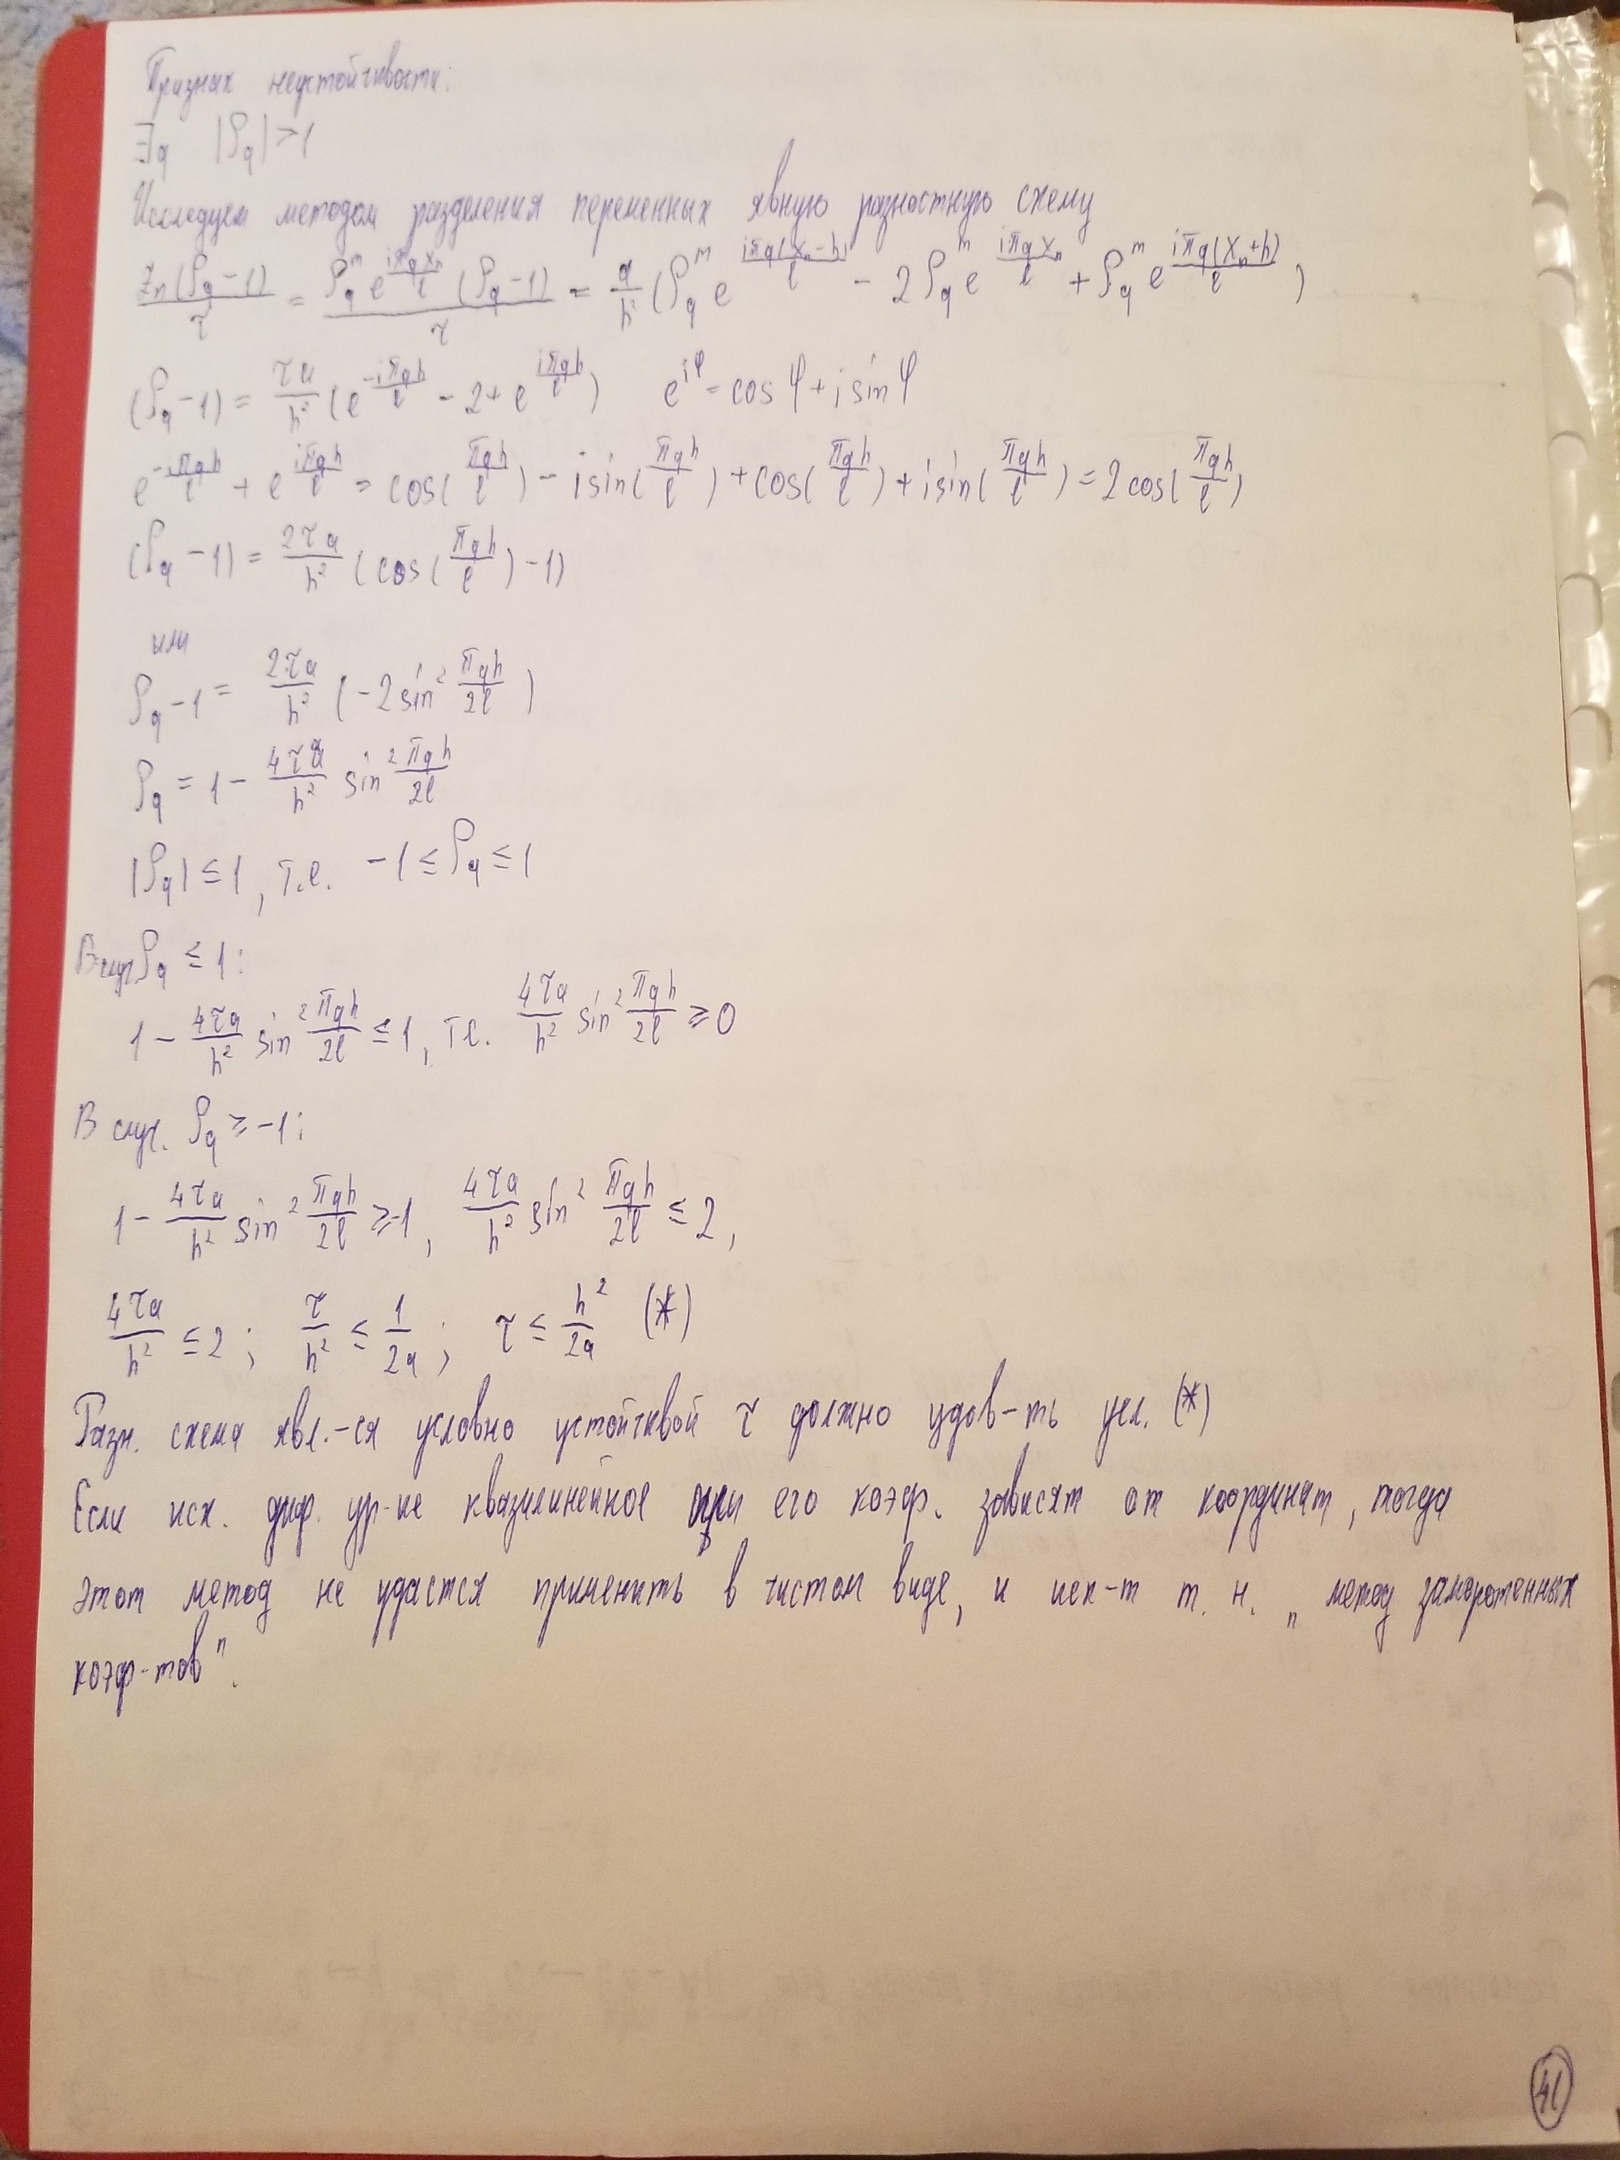 Признак неустойчивости:
∃q |ρ_q| > 1
Исследуем методом разделения переменных явную разностную схему
z_n(ρ_q-1)/τ = ρ_q^m e^(iπqx_n/l) (ρ_q-1)/τ = a/h² (ρ_q^m e^(iπq(x_n-h)/l) - 2ρ_q^m e^(iπqx_n/l) + ρ_q^m e^(iπq(x_n+h)/l))
(ρ_q-1) = τa/h² (e^(-iπqh/l) - 2 + e^(iπqh/l)) e^(iφ) = cos φ + i sin φ
e^(-iπqh/l) + e^(iπqh/l) = cos(πqh/l) - i sin(πqh/l) + cos(πqh/l) + i sin(πqh/l) = 2 cos(πqh/l)
(ρ_q-1) = 2τa/h² (cos(πqh/l) - 1)
или
ρ_q-1 = 2τa/h² (-2 sin² πqh/2l)
ρ_q = 1 - 4τa/h² sin² πqh/2l
|ρ_q| ≤ 1, т.е. -1 ≤ ρ_q ≤ 1
В случ ρ_q ≤ 1:
1 - 4τa/h² sin² πqh/2l ≤ 1, т.е. 4τa/h² sin² πqh/2l ≥ 0
В случ. ρ_q ≥ -1:
1 - 4τa/h² sin² πqh/2l ≥ -1, 4τa/h² sin² πqh/2l ≤ 2,
4τa/h² ≤ 2; τ/h² ≤ 1/2a; τ ≤ h²/2a (*)
Разн. схема явл.-ся условно устойчивой τ должно удов-ть усл. (*)
Если исх. диф. ур-ие квазилинейное или его коэф. зависят от координат, тогда
этот метод не удастся применить в чистом виде, и исп-т т. н. „метод замороженных
коэф-тов".
41